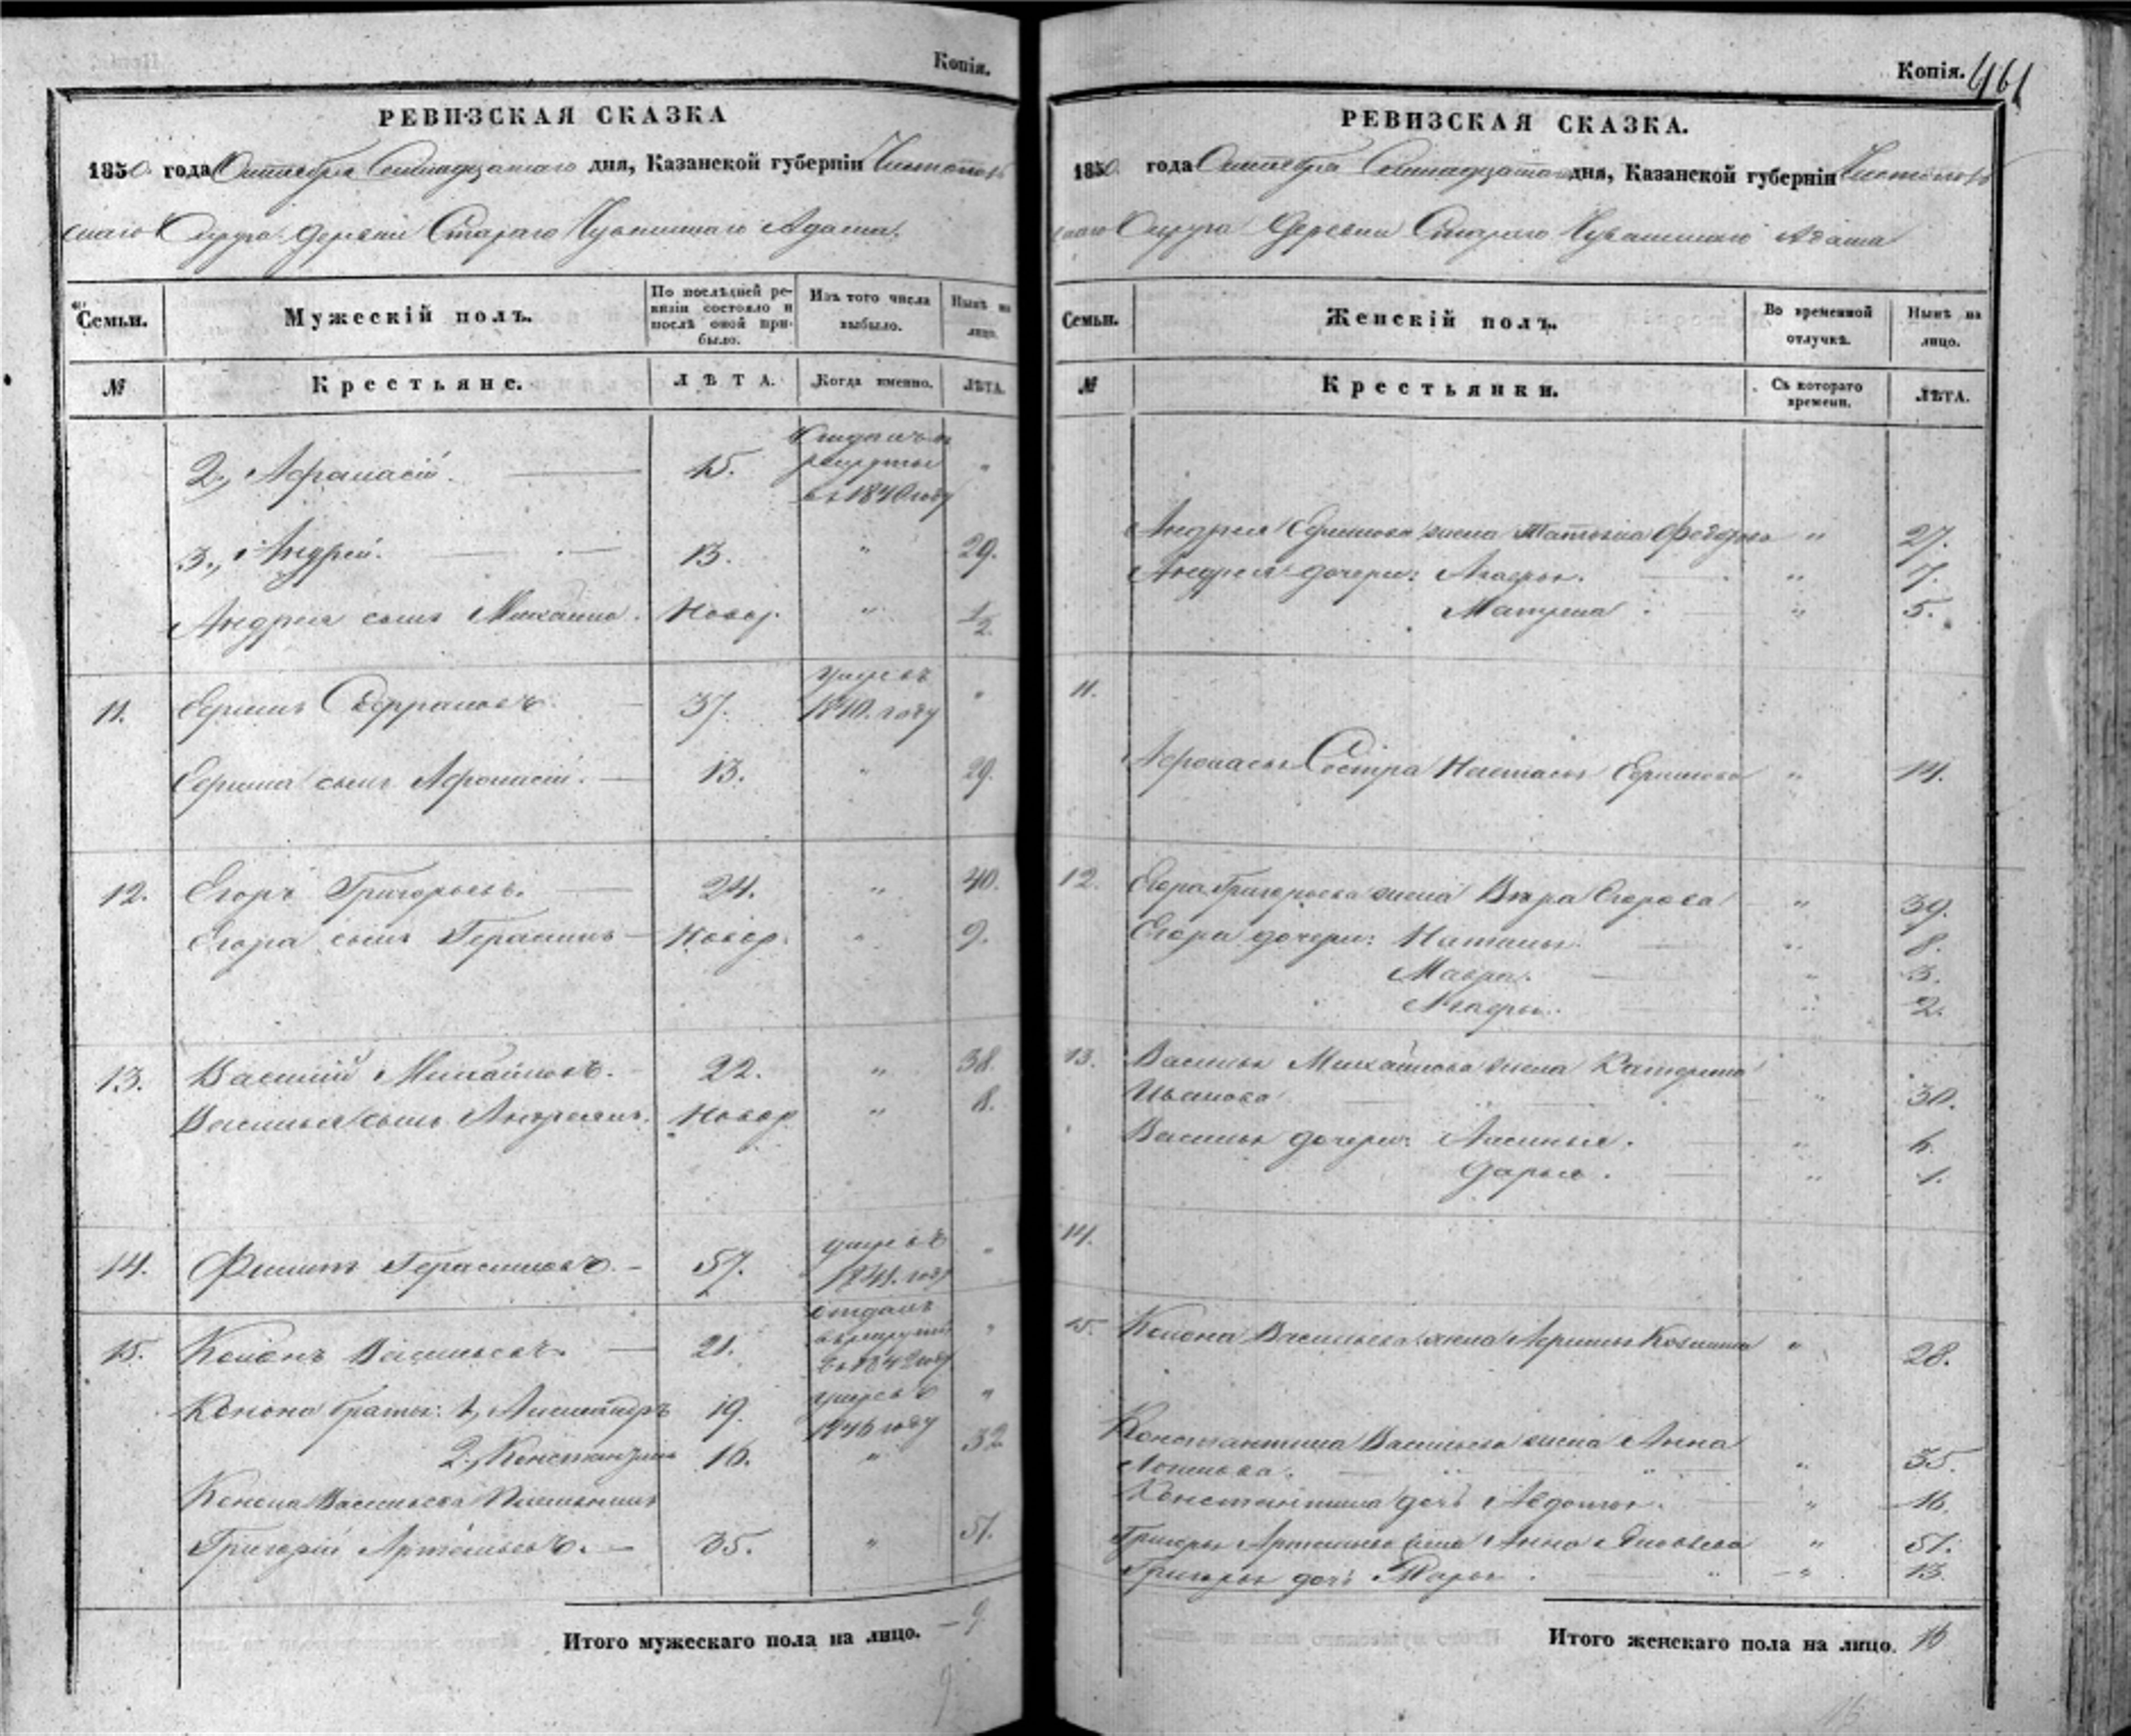 Копія.
РЕВИЗСКАЯ СКАЗКА
1850 года Октября Семнадцатаго дня, Казанской губерніи Чистополь
скаго Округа деревни Стараго Чувашскаго Адама.
Семьи.
Мужескій полъ.
По послѣдней ре-
визіи состояло и
послѣ оной при-
было.
Изъ того числа
выбыло.
Нынѣ на
лицо.
№
Крестьяне.
ЛѢТА.
Когда именно.
ЛѢТА.
2, Афанасій. 15. рекруты въ 1840 году "
3, Андрей. 13. " 29.
Андрея сынъ Михайло. Новор. " 1/2.
11. Ефимъ 37. умре въ 1840. году "
Ефима сынъ Афонасій. 13. " 29.
12. Егоръ Григорьевъ. 24. " 40.
Егора сынъ Герасимъ Новор. " 9.
13. Василий Михайловъ. 22. " 38.
Василья сынъ Новор " 8.
14. Филипъ Герасимовъ. 57. умре въ году "
15. Кононъ Васильевъ. 21. отданъ въ рекруты въ 1842 году "
Конона братья: 1, Александръ 19. умре въ 1846 году "
2, Константинъ 16. " 32
Конона Васильева
Григорій Артемьевъ. 35. " 51.
Итого мужескаго пола на лицо. 9
Копія. 461
РЕВИЗСКАЯ СКАЗКА.
1850 года Октября Семнадцатаго дня, Казанской губерніи Чистополь
скаго Округа деревни Стараго Чувашскаго Адама
Семьи.
Женскій полъ.
Во временной
отлучкѣ.
Нынѣ на
лицо.
№
Крестьянки.
Съ котораго
времени.
ЛѢТА.
Андрея Ефимова жена Федорова " 27.
Андрея дочери: " 7.
Матрена " 5.
11.
Сестра Настасья Ефимова " 14.
12. Егора Григорьева жена Вѣра Егорова " 39.
Егора дочери: " 8.
Мавра. " 3.
" 2.
13. Василья Михайлова жена Катерина
Иванова " 30.
Василья дочери:
Дарья. " 1.
14.
15. Конона Васильева жена " 28.
Константина Васильева жена Анна
" 35.
Константина дочь Авдотья. " 16.
Григорья Артемьева жена Анна " 51.
Григорья дочь Марья. " 13.
Итого женскаго пола на лицо. 16